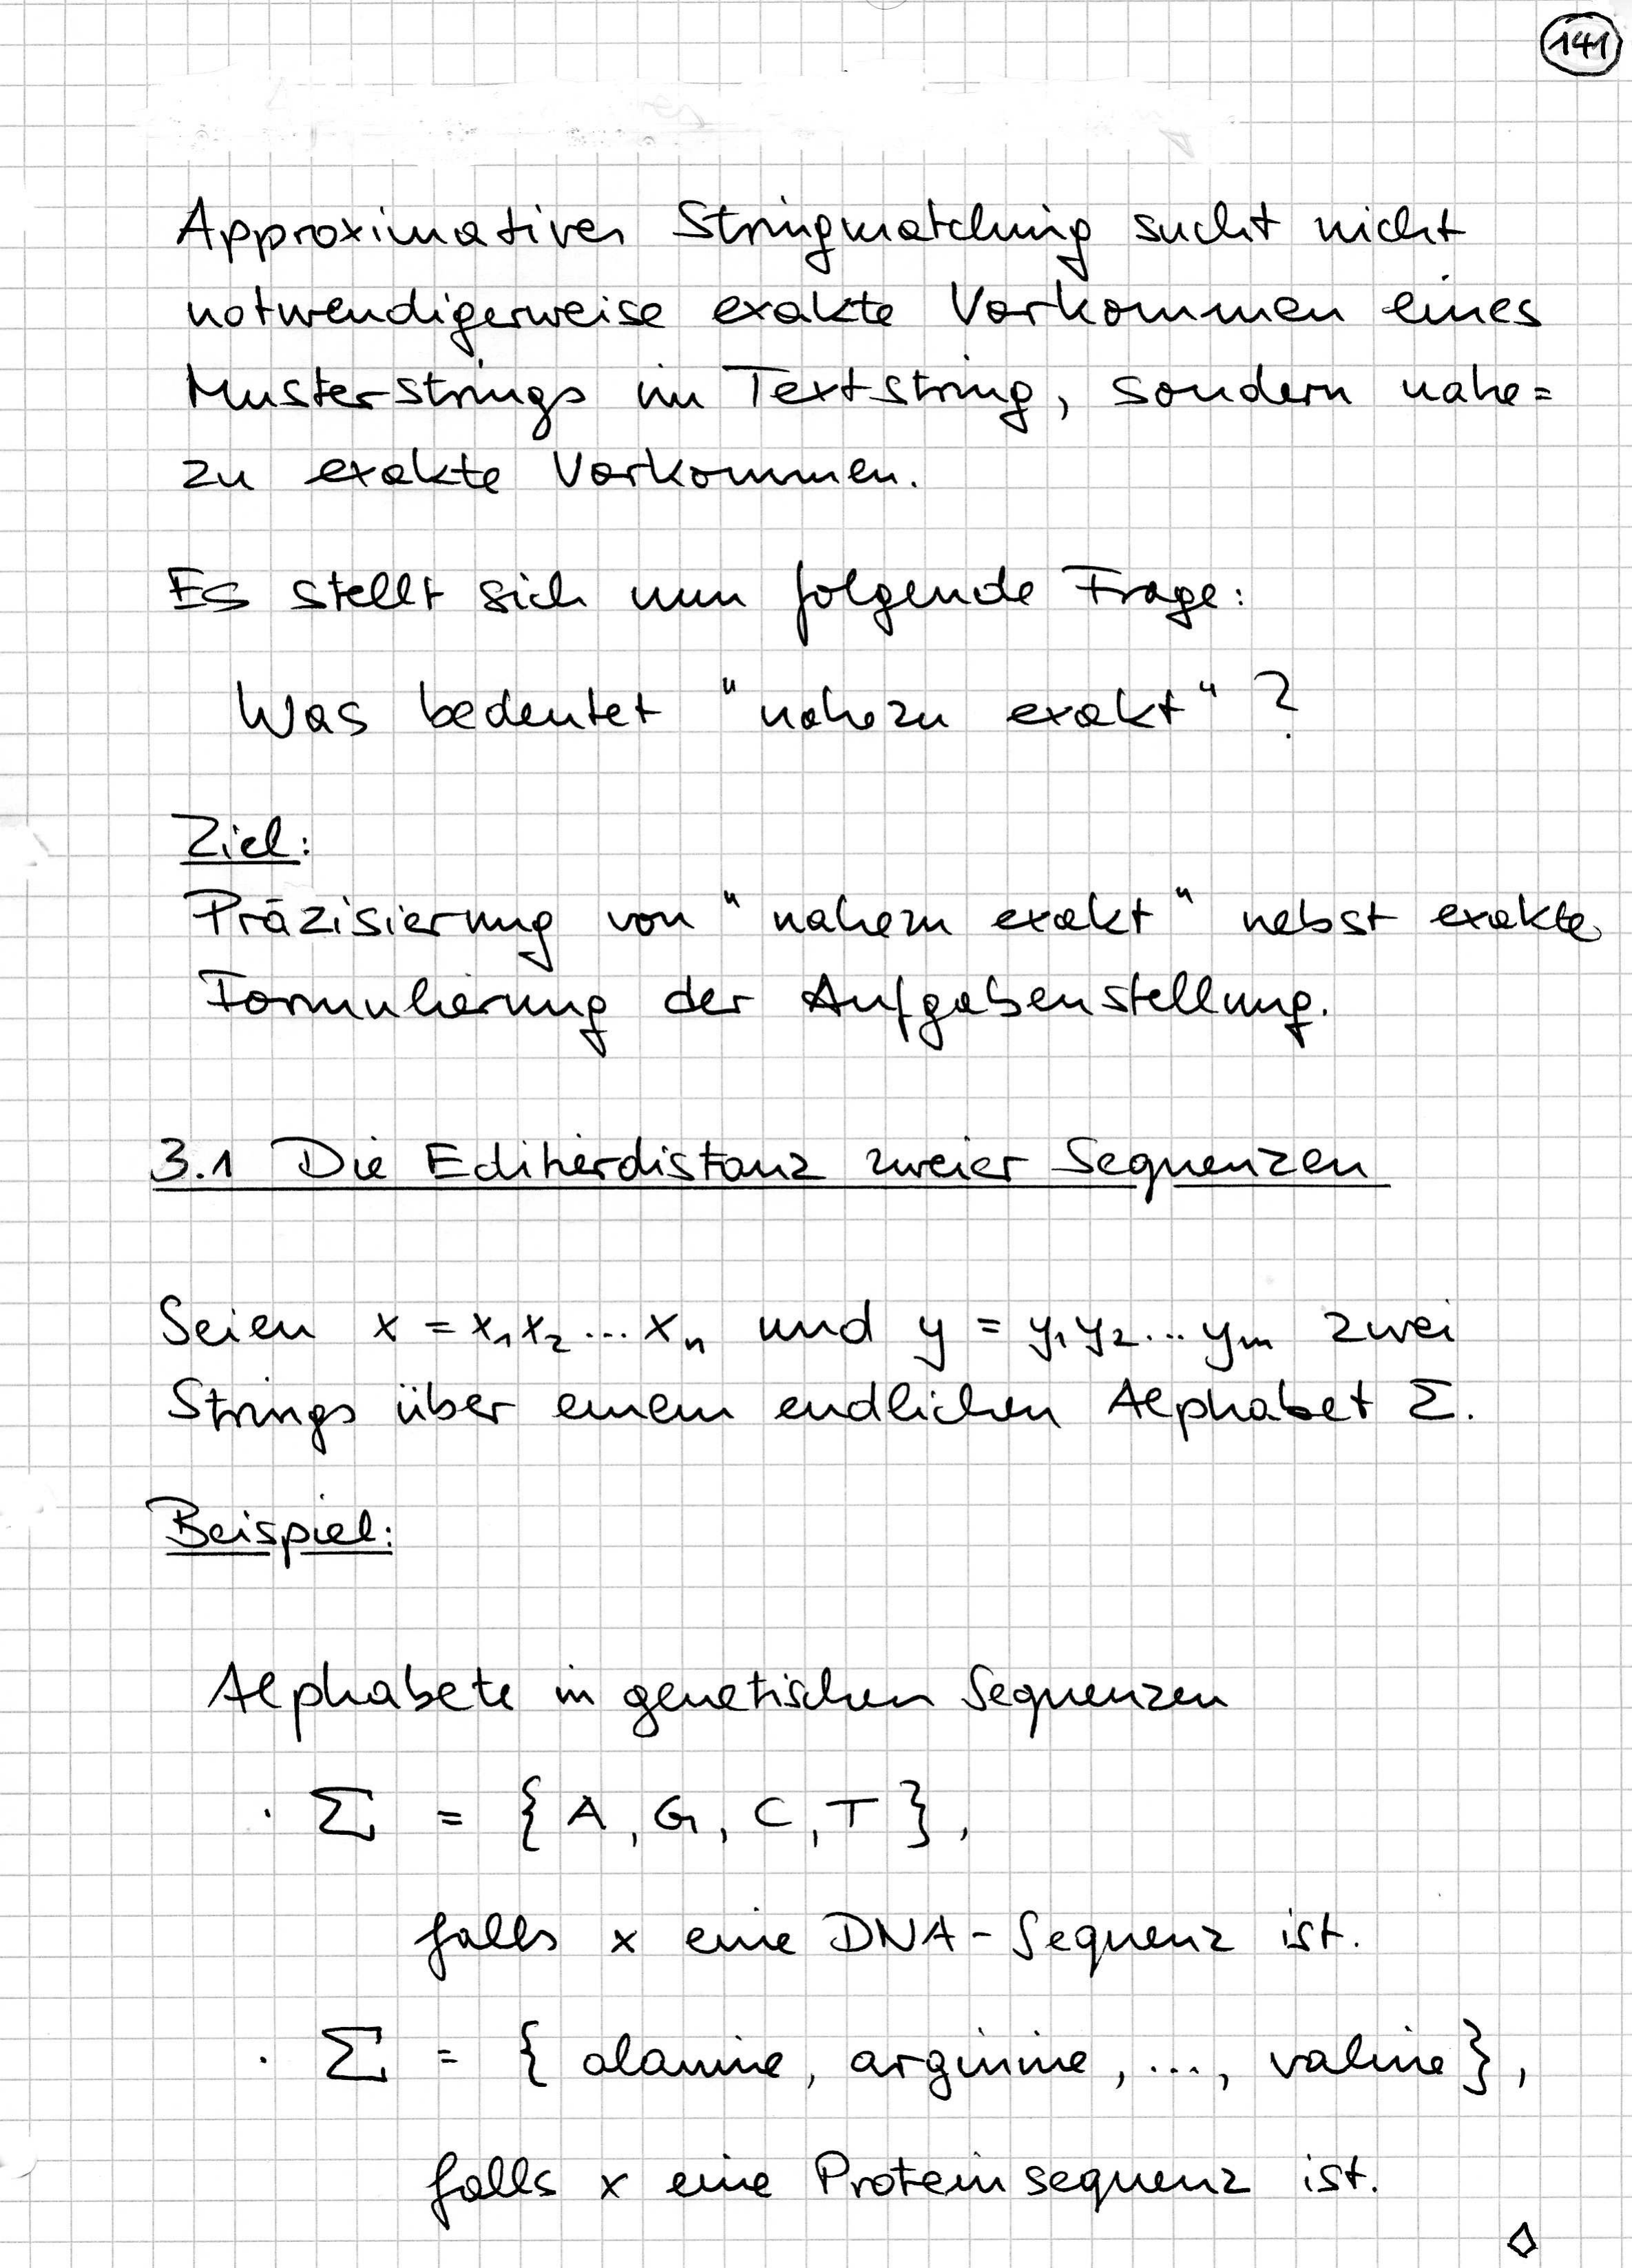 141
Approximatives Stringmatching sucht nicht
notwendigerweise exakte Vorkommen eines
Musterstrings im Textstring, sondern nahe=
zu exakte Vorkommen.
Es stellt sich nun folgende Frage:
Was bedeutet "nahezu exakt"?
Ziel:
Präzisierung von "nahezu exakt" nebst exakte
Formulierung der Aufgabenstellung.
3.1 Die Editierdistanz zweier Sequenzen
Seien x = x₁x₂...xₙ und y = y₁y₂...yₘ zwei
Strings über einem endlichen Alphabet Σ.
Beispiel:
Alphabete in genetischen Sequenzen
· Σ = {A, G, C, T},
falls x eine DNA-Sequenz ist.
· Σ = { alanine, arginine, ..., valine},
falls x eine Proteinsequenz ist.
◊